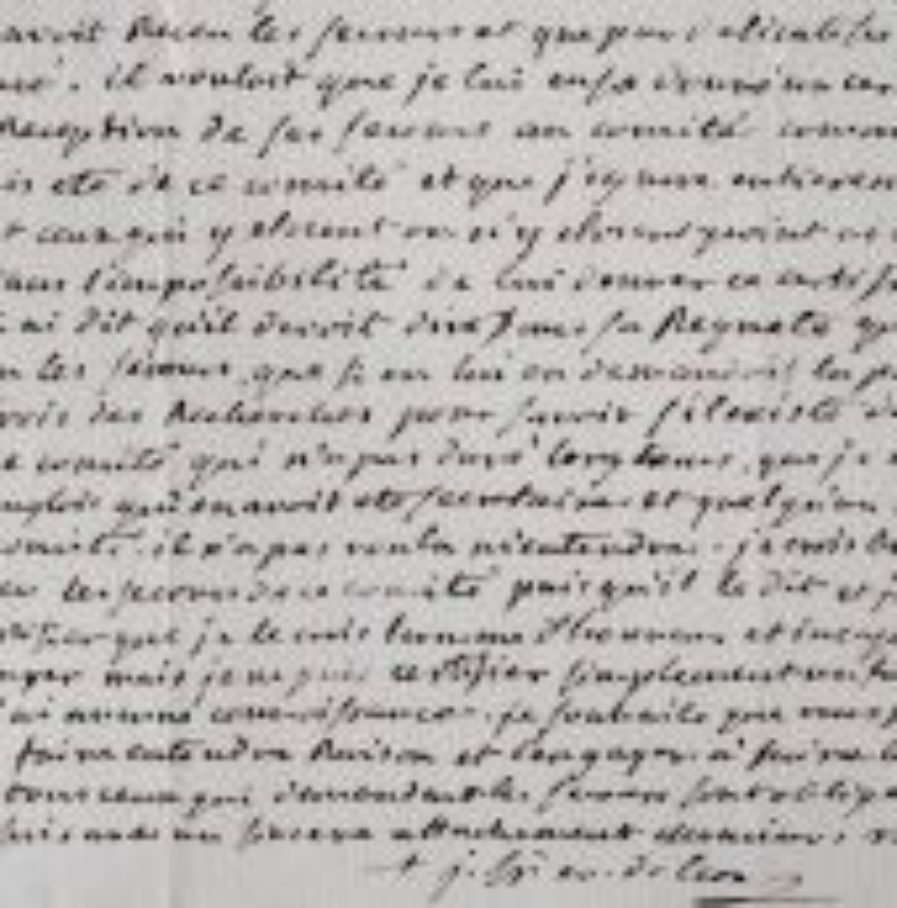 avoit Recu les secours et que pour
il vouloit que je lui eusse donné un cer
Reception de ses secours au comité
is eté de ce comité et que j'ignore entierem
t ceux qui y etoient ou n'y etoient point
dans l'impossibilité de lui donner ce certifi
ai dit qu'il devoit dire dans sa Requete qu
les secours, que si on lui en demandoit la p
rois des Recherches pour savoir s'il existe de
e comité qui n'a pas duré longtems, que je
qui en avoit eté secretaire et quelqu'un
comité. il n'a pas voulu m'entendre. je crois
les secours de ce comité puisqu'il le dit et j
tifier que je le crois homme d'honneur et incap
mais je ne puis certifier simplement
ai aucune connoissance. je souhaite que vous
faire entendre Raison et l'engager a faire
tous ceux qui demandent les secours sont oblige
suis avec un sincere attachement
+ j. fr. ev. de Leon